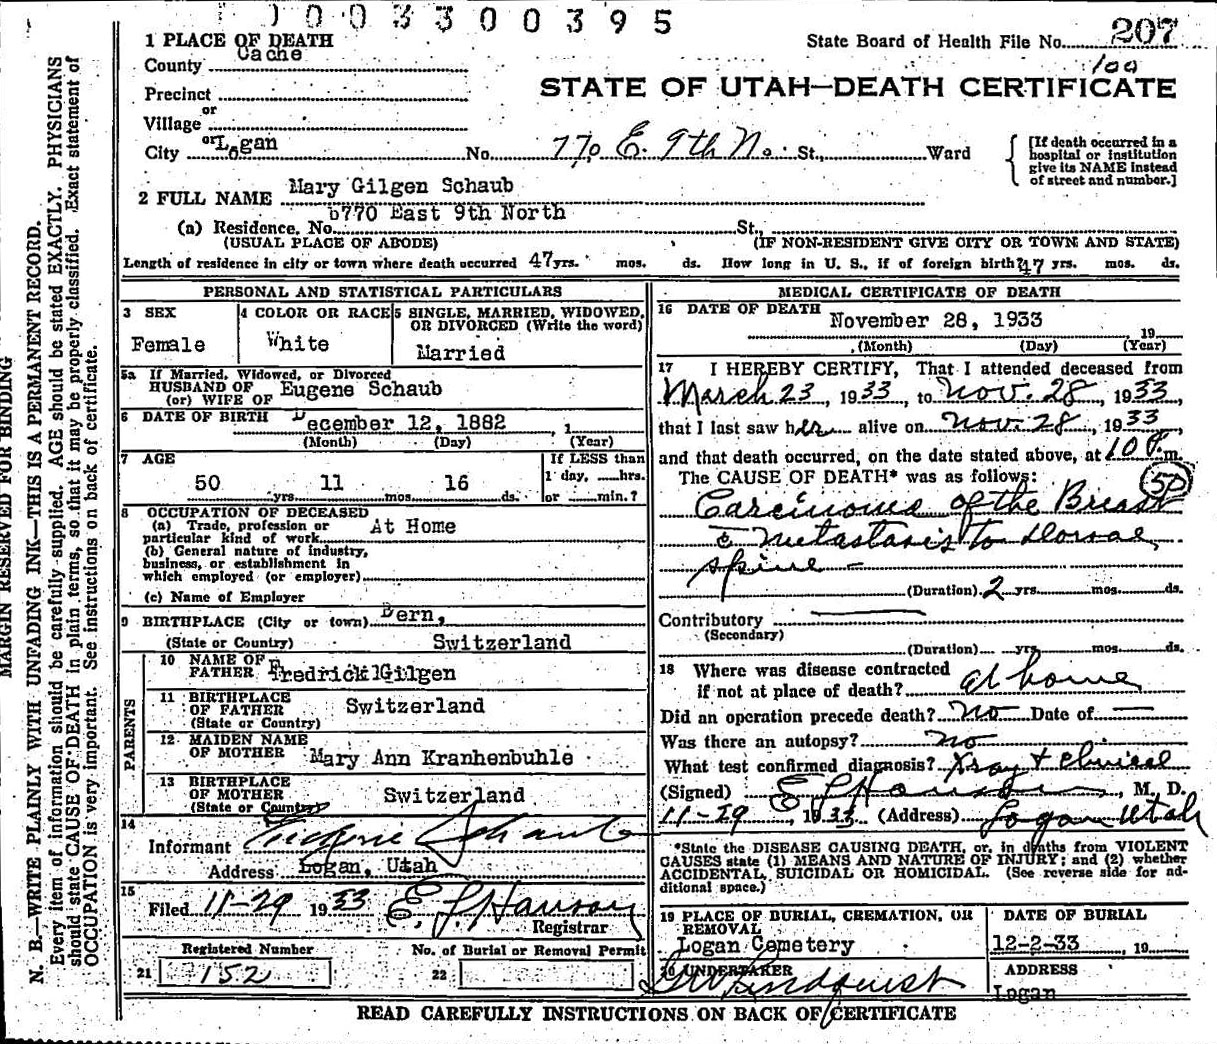 1003300395
1 PLACE OF DEATH
State Board of Health File No. 207
County Cache
100
STATE OF UTAH—DEATH CERTIFICATE
Precinct
or
Village
or
City Logan No. 770 E. 9th No. St., Ward
[If death occurred in a hospital or institution give its NAME instead of street and number.]
2 FULL NAME Mary Gilgen Schaub
(a) Residence. No. 770 East 9th North St.,
(USUAL PLACE OF ABODE) (IF NON-RESIDENT GIVE CITY OR TOWN AND STATE)
Length of residence in city or town where death occurred 47 yrs. mos. ds. How long in U. S., if of foreign birth? 47 yrs. mos. ds.
PERSONAL AND STATISTICAL PARTICULARS
3 SEX
Female
4 COLOR OR RACE
White
5 SINGLE, MARRIED, WIDOWED, OR DIVORCED (Write the word)
Married
5a If Married, Widowed, or Divorced
HUSBAND OF
(or) WIFE OF Eugene Schaub
6 DATE OF BIRTH December 12, 1882 , 1
(Month) (Day) (Year)
7 AGE
50 yrs. 11 mos. 16 ds.
If LESS than
1 day, hrs.
or min.?
8 OCCUPATION OF DECEASED
(a) Trade, profession or
particular kind of work At Home
(b) General nature of industry,
business, or establishment in
which employed (or employer)
(c) Name of Employer
9 BIRTHPLACE (City or town) Bern,
(State or Country) Switzerland
PARENTS
10 NAME OF
FATHER Fredrick Gilgen
11 BIRTHPLACE
OF FATHER Switzerland
(State or Country)
12 MAIDEN NAME
OF MOTHER Mary Ann Kranhenbuhle
13 BIRTHPLACE
OF MOTHER Switzerland
(State or Country)
14
Informant Eugene Schaub
Address Logan, Utah
15
Filed 11-29 1933 E. L. Hanson
Registrar
Registered Number
21 152
No. of Burial or Removal Permit
22
MEDICAL CERTIFICATE OF DEATH
16 DATE OF DEATH November 28, 1933 19
(Month) (Day) (Year)
17 I HEREBY CERTIFY, That I attended deceased from
March 23, 1933, to Nov. 28, 1933,
that I last saw her alive on Nov. 28, 1933,
and that death occurred, on the date stated above, at 10 P. m.
The CAUSE OF DEATH* was as follows: 50
Carcinoma of the Breast
c̄ metastasis to dorsal
spine -
(Duration) 2 yrs. mos. ds.
Contributory
(Secondary)
(Duration) yrs. mos. ds.
18 Where was disease contracted
if not at place of death? at home
Did an operation precede death? No Date of —
Was there an autopsy? no
What test confirmed diagnosis? Xray + Clinical
(Signed) E L Hanson, M. D.
11-29, 1933 (Address) Logan Utah
*State the DISEASE CAUSING DEATH, or, in deaths from VIOLENT
CAUSES state (1) MEANS AND NATURE OF INJURY; and (2) whether
ACCIDENTAL, SUICIDAL OR HOMICIDAL. (See reverse side for ad-
ditional space.)
19 PLACE OF BURIAL, CREMATION, OR
REMOVAL
Logan Cemetery
DATE OF BURIAL
12-2-33, 19
20 UNDERTAKER
Lindquist
ADDRESS
Logan
READ CAREFULLY INSTRUCTIONS ON BACK OF CERTIFICATE
MARGIN RESERVED FOR BINDING
N. B.—WRITE PLAINLY WITH UNFADING INK—THIS IS A PERMANENT RECORD.
Every item of information should be carefully supplied. AGE should be stated EXACTLY. PHYSICIANS
should state CAUSE OF DEATH in plain terms, so that it may be properly classified. Exact statement of
OCCUPATION is very important. See instructions on back of certificate.